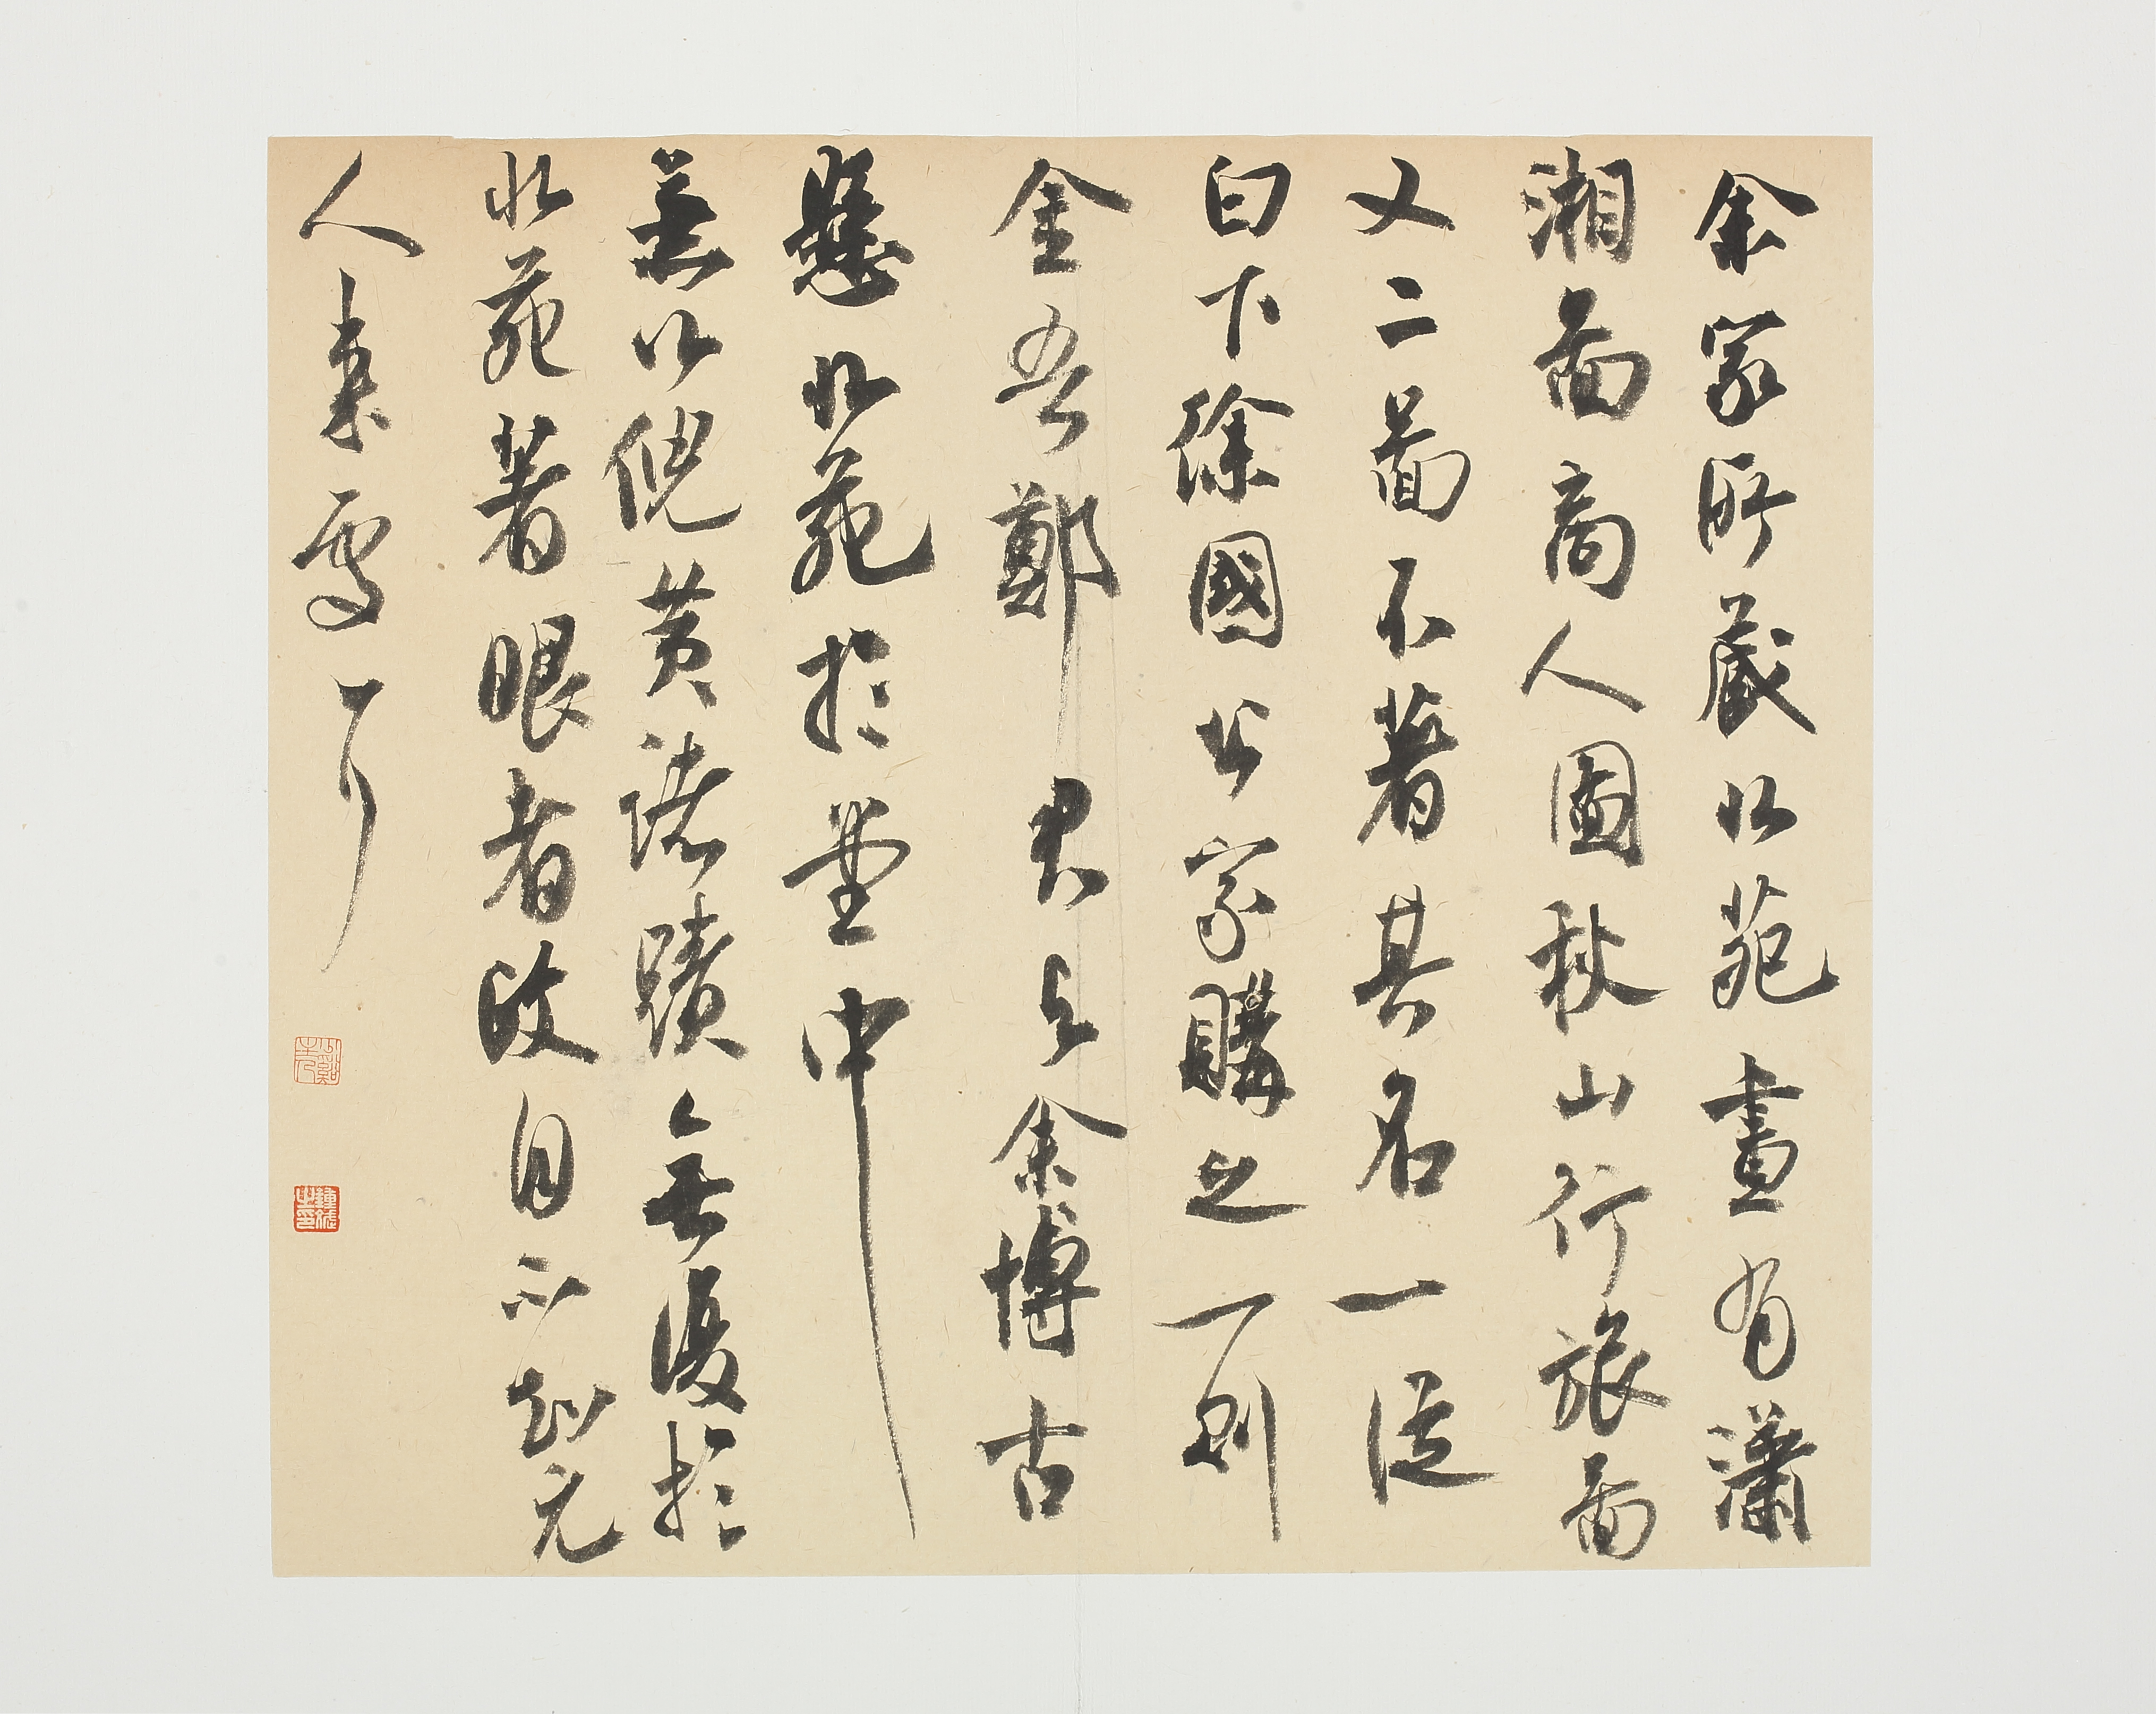 余家所藏北苑畫有瀟
湘圖商人圖秋山行旅圖
又二圖不著其名一從
白下徐國公家購之一則
金吾鄭君與余博古
懸北苑於堂中
兼以倪黃諸蹟無復於
北苑著眼者政自不知元
人來處耳